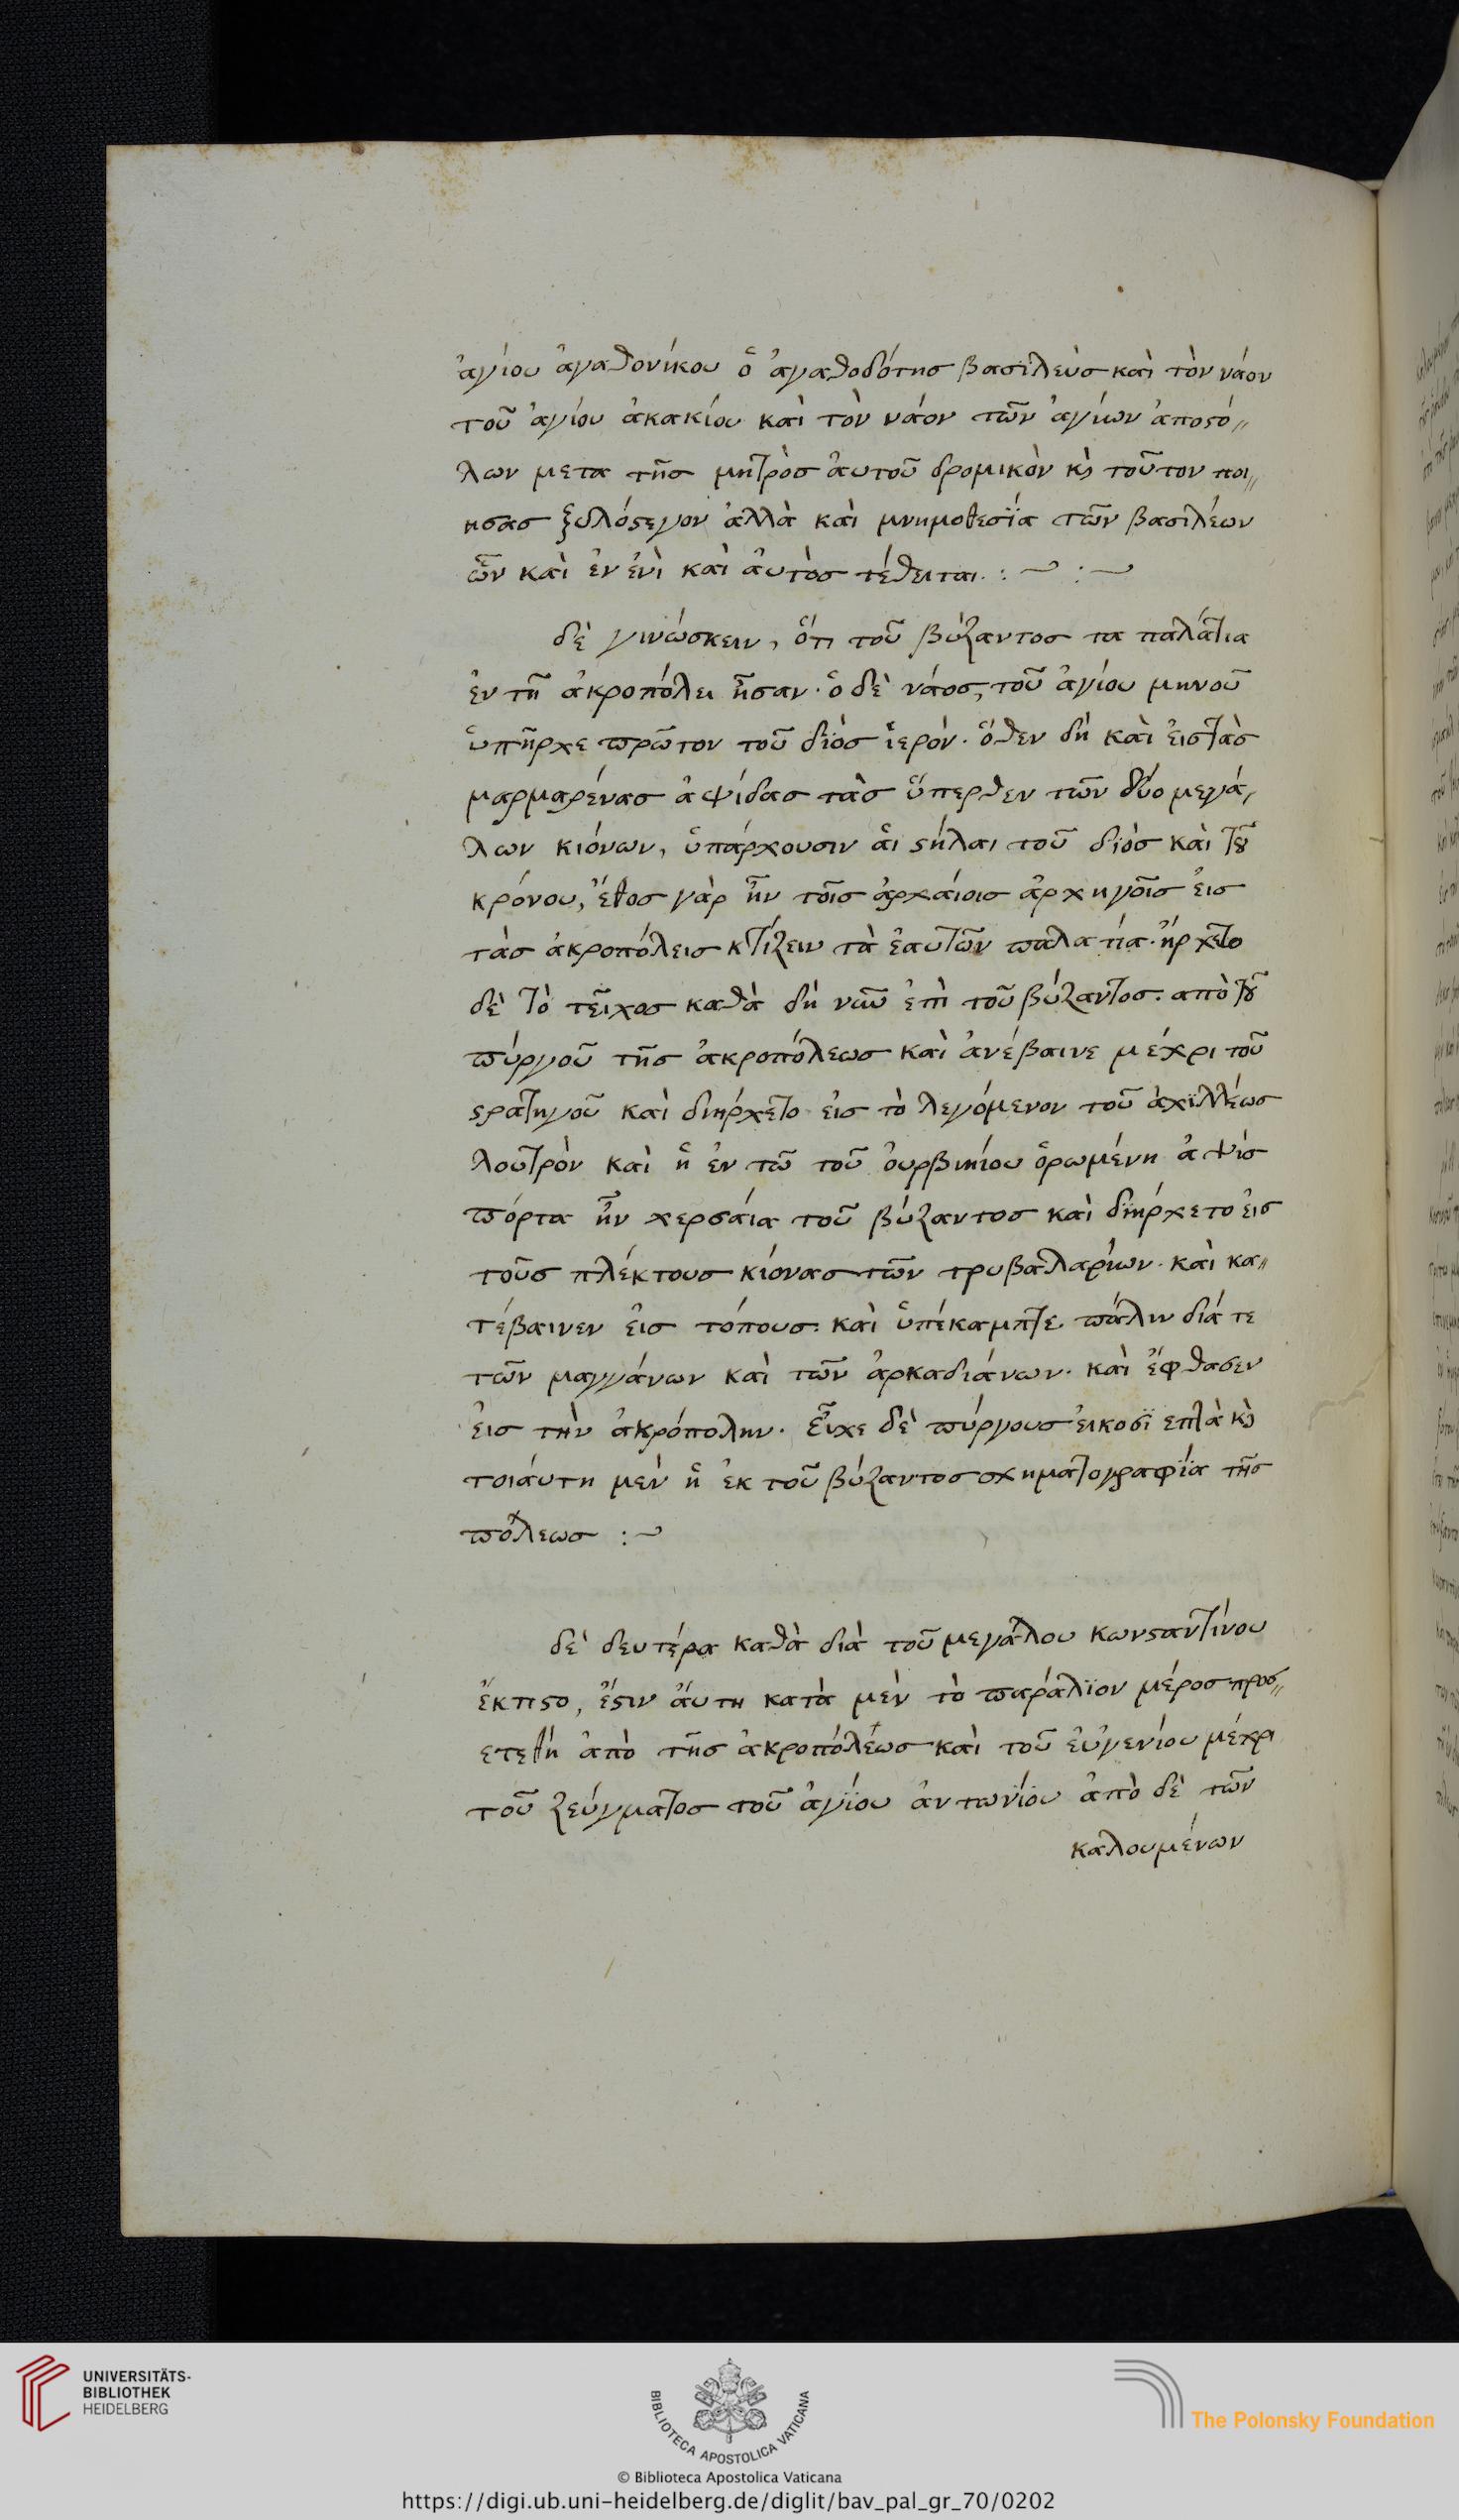 ἁγίου ἀγαθονίκου ὁ ἀγαθοδότης βασιλεὺς καὶ τὸν νάον
τοῦ ἁγίου ἀκακίου καὶ τὸν νάον τῶν ἁγίων ἀποϛό〃
λων μετα τῆς μητρὸς ἀυτοῦ δρομικὸν κὶ τοῦτον ποι〃
ησας ξυλόϛεγον ἀλλὰ καὶ μνημοθεσΐα τῶν βασιλέων
ὧν καὶ ἐν ἑνὶ καὶ ἀυτὸς τέθειται. : ~ : ~
δὲ γινώσκειν, ὅτι τοῦ βύζαντος τα παλάτια
ἐν τῆ ἀκροπόλει ἦσαν· ὁ δὲ νάος, τοῦ ἁγίου μηνοῦ
ὑπῆρχε πρῶτον τοῦ διὸς ἱερόν· ὅθεν δὴ καὶ ἐις τὰς
μαρμαρένας ἀψίδας τὰς ὕπερθεν τῶν δύο μεγά,
λων κιόνων, ὑπάρχουσιν ἁι ϛήλαι τοῦ διὸς καὶ τοῦ
κρόνου, ἔθος γὰρ ἦν τοῖς ἀρχάιοις ἀρχηγοῖς ἐις
τὰς ἀκροπόλεις κτίζειν τὰ ἑαυτῶν παλατία· ἤρχετο
δὲ τὸ τεῖχος καθὰ δὴ νῦν ἐπὶ τοῦ βύζαντος· απὸ τοῦ
πύργοῦ τῆς ἀκροπόλεως καὶ ἀνέβαινε μέχρι τοῦ
ϛρατηγοῦ καὶ διηρχετο ἐις τὸ λεγόμενον τοῦ ἀχιλλέως
λουτρὸν καὶ ἡ ἐν τῶ τοῦ ὀυρβικίου ὁρωμένη ἀψὶς
πόρτα ἦν χερσάια τοῦ βύζαντος καὶ διήρχετο ἐις
τοὺς πλέκτους κίονας τῶν τρυβαλαρίων· καὶ κα〃
τέβαινεν ἐις τόπους· καὶ ὑπέκαμπτε πάλιν διά τε
τῶν μαγγάνων καὶ τῶν ἀρκαδιάνων· καὶ ἔφθασεν
ἐις τὴν ἀκρόπολην· Εἶχε δὲ πύργους ἐικοσϊ επτὰ κὶ
τοιάυτη μὲν ἡ ἐκ τοῦ βύζαντος σχηματογραφία τῆς
πόλεως : ~
δὲ δευτέρα καθὰ διὰ τοῦ μεγάλου κωνϛαντίνου
ἔκτιϛο, ἔϛιν ἅυτη κατὰ μὲν τὸ παράλιον μέρος προσ〃
ετεθή ἀπὸ τῆς ἀκροπόλέως καὶ τοῦ ἐυγενίου μέχρι
τοῦ ζεύγματος τοῦ ἁγίου ἀντωνίου ἀπὸ δὲ τῶν
καλουμένων
UNIVERSITÄTS-
BIBLIOTHEK
HEIDELBERG
BIBLIOTECA APOSTOLICA VATICANA
The Polonsky Foundation
© Biblioteca Apostolica Vaticana
https://digi.ub.uni-heidelberg.de/diglit/bav_pal_gr_70/0202